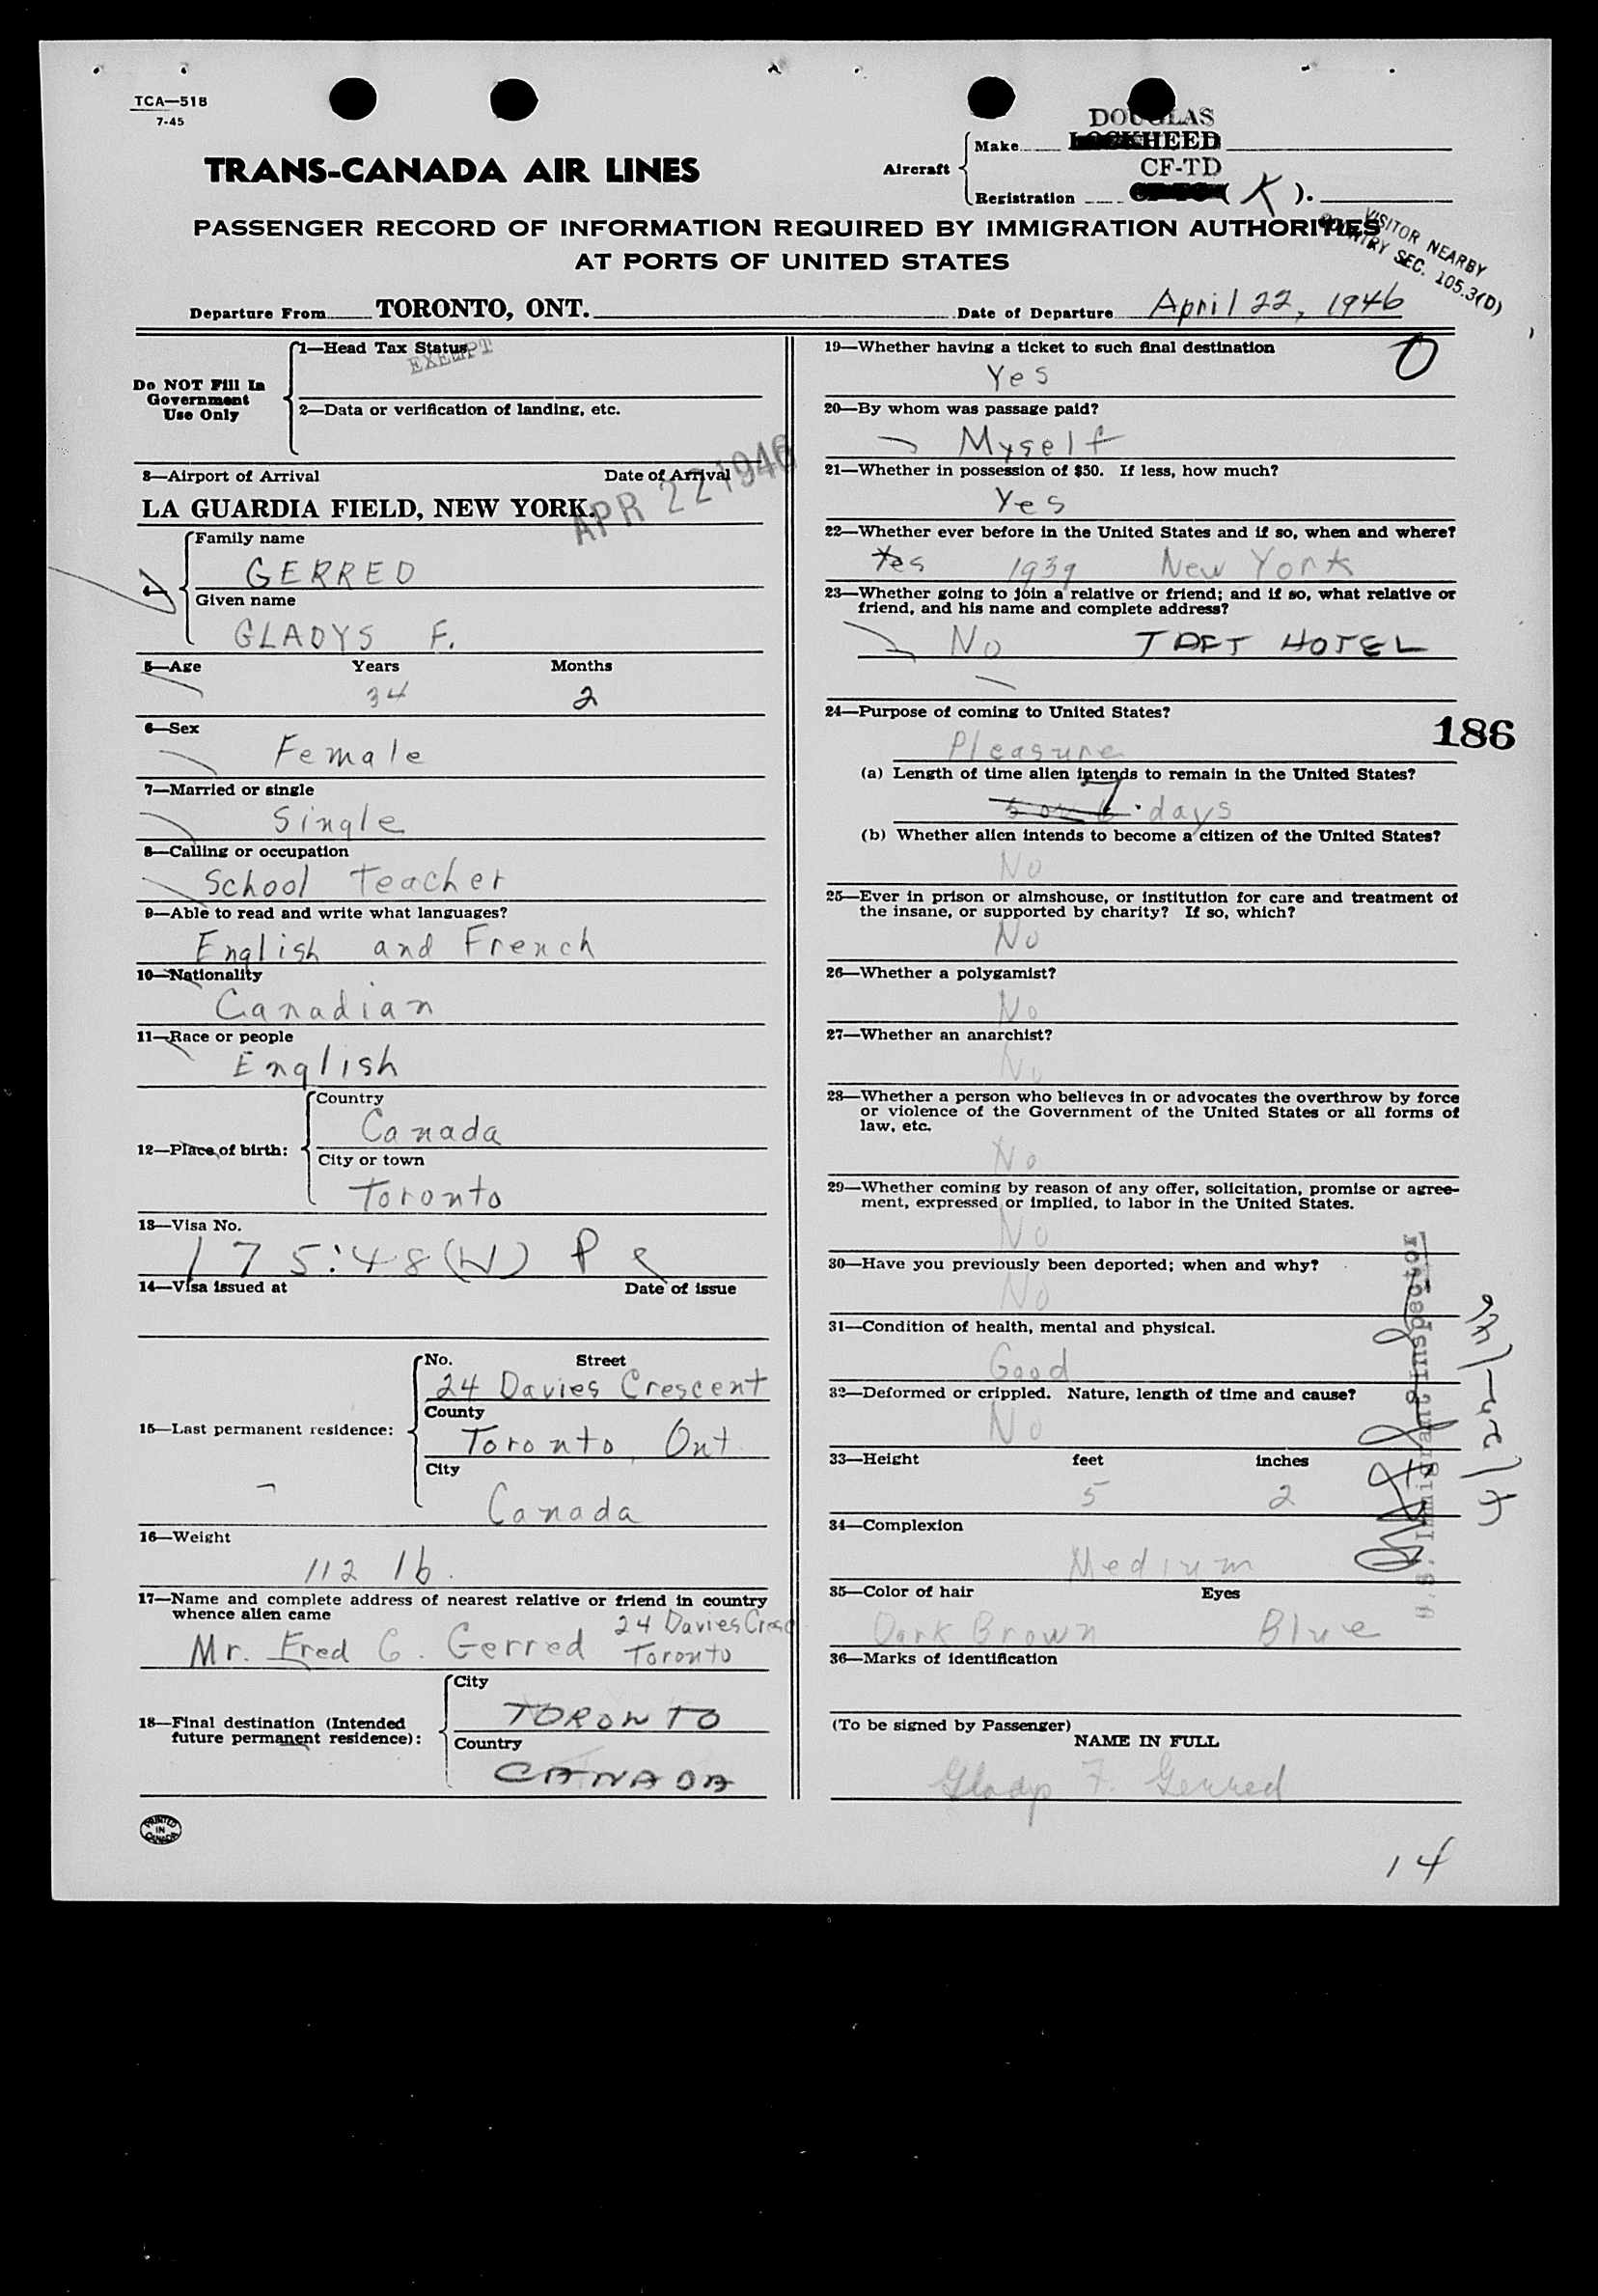 TCA—518
7-45
TRANS-CANADA AIR LINES
Aircraft
Make
DOUGLAS
LOCKHEED
CF-TD
Registration
( K ).
PASSENGER RECORD OF INFORMATION REQUIRED BY IMMIGRATION AUTHORITIES
AT PORTS OF UNITED STATES
VISITOR NEARBY
COUNTRY SEC. 105.3(D)
Departure From TORONTO, ONT.
Date of Departure April 22, 1946
Do NOT Fill In
Government
Use Only
1—Head Tax Status
EXEMPT
2—Data or verification of landing, etc.
3—Airport of Arrival Date of Arrival
LA GUARDIA FIELD, NEW YORK.
APR 22 1946
Family name
GERRED
Given name
GLADYS F.
5—Age Years Months
34 2
6—Sex
Female
7—Married or single
Single
8—Calling or occupation
School Teacher
9—Able to read and write what languages?
English and French
10—Nationality
Canadian
11—Race or people
English
12—Place of birth:
Country
Canada
City or town
Toronto
13—Visa No.
175:48(W) P
14—Visa issued at Date of issue
15—Last permanent residence:
No. Street
24 Davies Crescent
County
Toronto, Ont
City
Canada
16—Weight
112 lb.
17—Name and complete address of nearest relative or friend in country
whence alien came
24 Davies Cresc
Mr. Fred G. Gerred Toronto
18—Final destination (Intended
future permanent residence):
City
TORONTO
Country
CANADA
PRINTED
IN
CANADA
19—Whether having a ticket to such final destination
Yes
0
20—By whom was passage paid?
Myself
21—Whether in possession of $50. If less, how much?
Yes
22—Whether ever before in the United States and if so, when and where?
Yes 1939 New York
23—Whether going to join a relative or friend; and if so, what relative or
friend, and his name and complete address?
No TAFT HOTEL
24—Purpose of coming to United States?
Pleasure
186
(a) Length of time alien intends to remain in the United States?
5 or 6 7 days
(b) Whether alien intends to become a citizen of the United States?
No
25—Ever in prison or almshouse, or institution for care and treatment of
the insane, or supported by charity? If so, which?
No
26—Whether a polygamist?
No
27—Whether an anarchist?
No
28—Whether a person who believes in or advocates the overthrow by force
or violence of the Government of the United States or all forms of
law, etc.
No
29—Whether coming by reason of any offer, solicitation, promise or agree-
ment, expressed or implied, to labor in the United States.
No
30—Have you previously been deported; when and why?
No
31—Condition of health, mental and physical.
Good
32—Deformed or crippled. Nature, length of time and cause?
No
33—Height feet inches
5 2
34—Complexion
Medium
35—Color of hair Eyes
Dark Brown Blue
36—Marks of identification
U.S. Immigrant Inspector
4/22/46
(To be signed by Passenger)
NAME IN FULL
Gladys F. Gerred
14